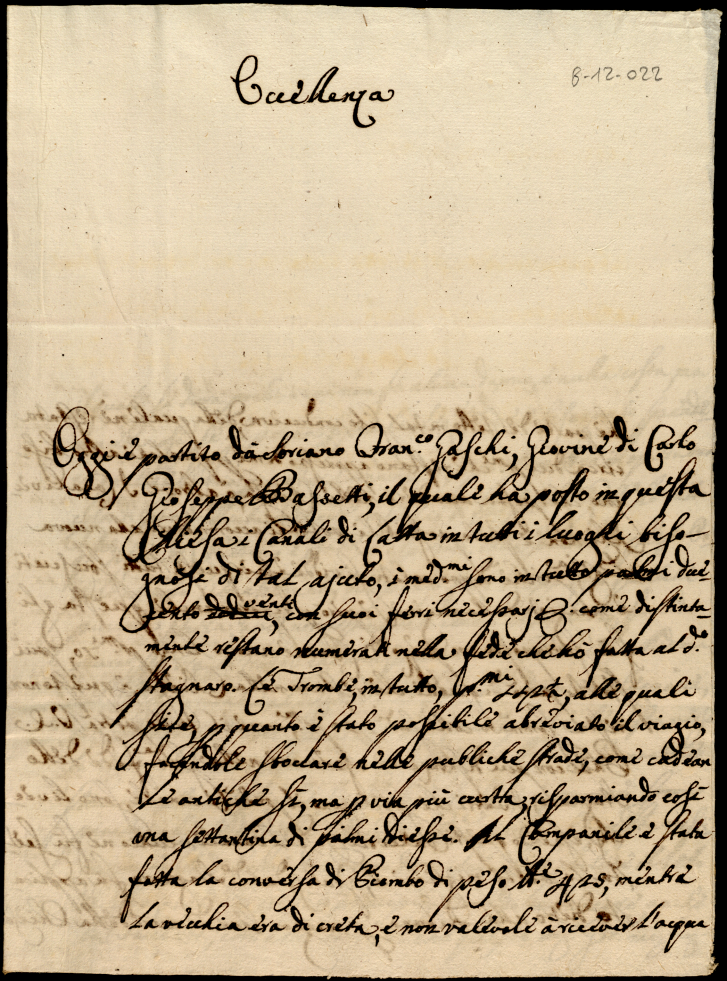 8-12-022
Eccellenza
Oggi è partito da Soriano Fran.co Zaschi, Giovine di Carlo
Gioseppe Bassetti, il quale ha posto in questa
Chiesa i Canali di Latta in tutti i luoghi biso-
gnosi di tal ajuto, i med.mi sono in tutto palmi due-
cento venti, con suoi ferri necessarj, come distinta-
mente restano numerati nella fede che hò fatta al d.o
stagnaro. Le Trombe in tutto, p.mi, alle quali
p quanto è stato possibile abreviato il viagio,
facendole sboccare nelle publiche strade, come cadean
le antiche sì, ma p via più curta, risparmiando così
una settantina di palmi di esse. Al Campanile è stata
fatta la conversa di Piombo di peso 425, mentre
la vecchia era di creta, e non valevole à ricever l'acqua